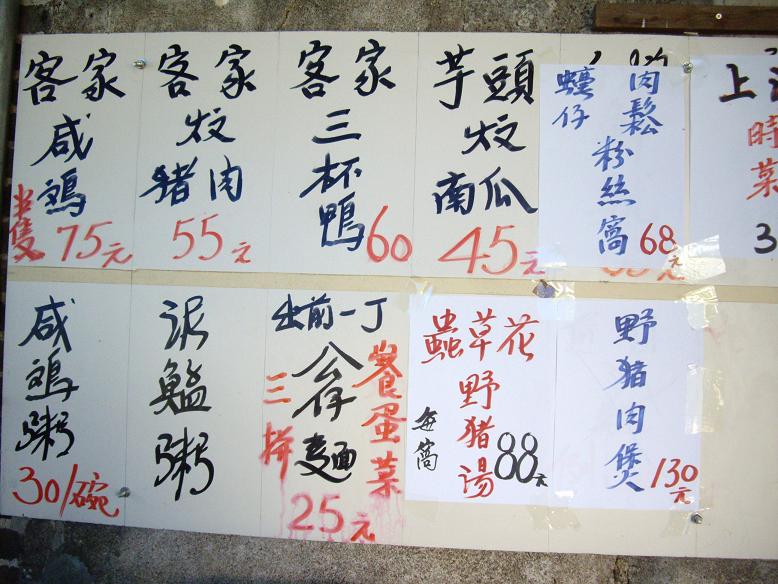 客家
咸鷄
半隻 75元
客家
炆
猪肉
55元
客家
三
杯
鴨 60
芋頭
炆
南瓜
45元
肉鬆
蠔仔
粉絲窩
68元
上
時菜
3
咸
鷄
粥
30/碗
泥
鯭
粥
出前一丁
公仔
麵
餐蛋菜
三拼
25元
蟲草花
野猪湯
每窩
88元
野猪肉煲
130元